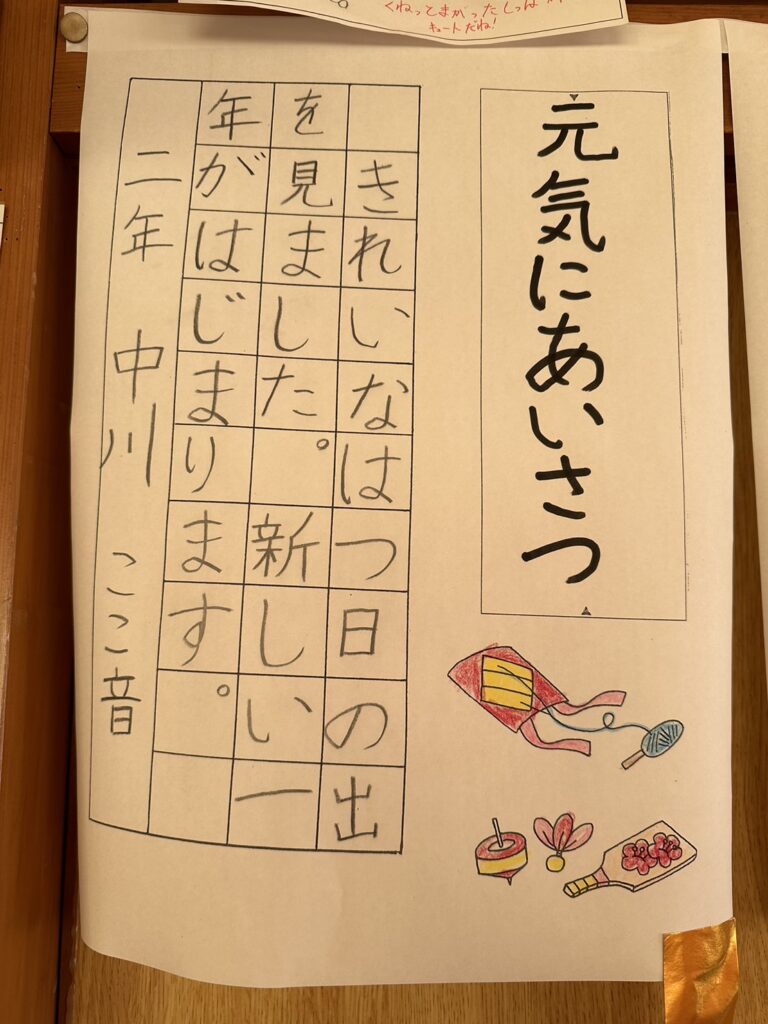 くねってまがったしっぽが
キュートだね!
元気にあいさつ
きれいなはつ日の出
を見ました。新しい一
年がはじまります。
二年 中川 ここ音